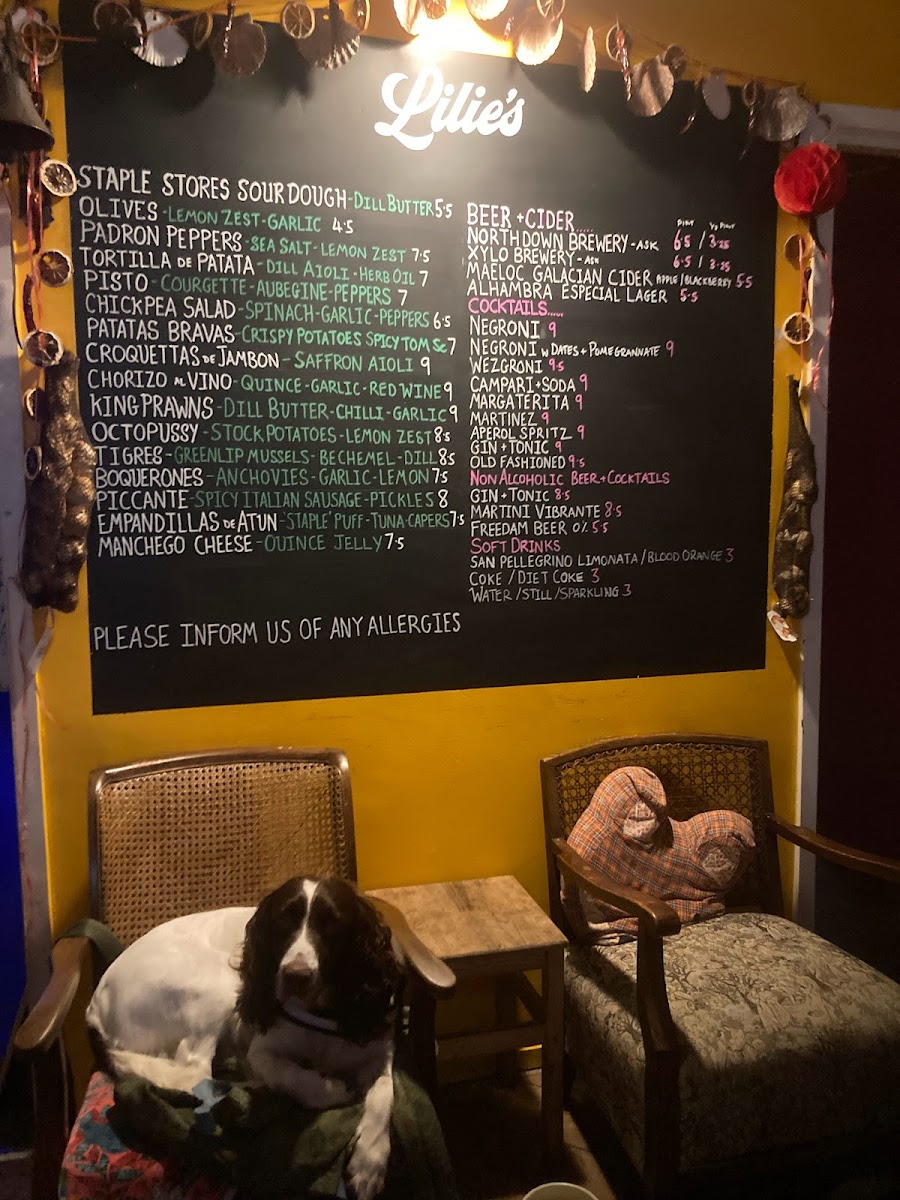 Lilie's
STAPLE STORES SOURDOUGH-DILL BUTTER 5.5
OLIVES-LEMON ZEST-GARLIC 4.5
PADRON PEPPERS-SEA SALT-LEMON ZEST 7.5
TORTILLA DE PATATA-DILL AIOLI-HERB OIL 7
PISTO-COURGETTE-AUBEGINE-PEPPERS 7
CHICKPEA SALAD-SPINACH-GARLIC-PEPPERS 6.5
PATATAS BRAVAS-CRISPY POTATOES SPICY TOM SC 7
CROQUETTAS DE JAMBON-SAFFRON AIOLI 9
CHORIZO AL VINO-QUINCE-GARLIC-RED WINE 9
KING PRAWNS-DILL BUTTER-CHILLI-GARLIC 9
OCTOPUSSY-STOCK POTATOES-LEMON ZEST 8.5
TIGRES-GREENLIP MUSSELS-BECHEMEL-DILL 8.5
BOQUERONES-ANCHOVIES-GARLIC-LEMON 7.5
PICCANTE-SPICY ITALIAN SAUSAGE-PICKLES 8
EMPANDILLAS DE ATUN-'STAPLE' PUFF-TUNA-CAPERS 7.5
MANCHEGO CHEESE-QUINCE JELLY 7.5
PLEASE INFORM US OF ANY ALLERGIES
BEER+CIDER..... PINT ½ PINT
NORTHDOWN BREWERY-ASK 6.5 / 3.25
XYLO BREWERY-ASK 6.5 / 3.25
MAELOC GALACIAN CIDER APPLE/BLACKBERRY 5.5
ALHAMBRA ESPECIAL LAGER 5.5
COCKTAILS.....
NEGRONI 9
NEGRONI W DATES+POMEGRANNATE 9
WEZGRONI 9.5
CAMPARI+SODA 9
MARGATERITA 9
MARTINEZ 9
APEROL SPRITZ 9
GIN+TONIC 9
OLD FASHIONED 9.5
NON ALCOHOLIC BEER+COCKTAILS
GIN+TONIC 8.5
MARTINI VIBRANTE 8.5
FREEDAM BEER 0% 5.5
SOFT DRINKS
SAN PELLEGRINO LIMONATA/BLOOD ORANGE 3
COKE/DIET COKE 3
WATER/STILL/SPARKLING 3